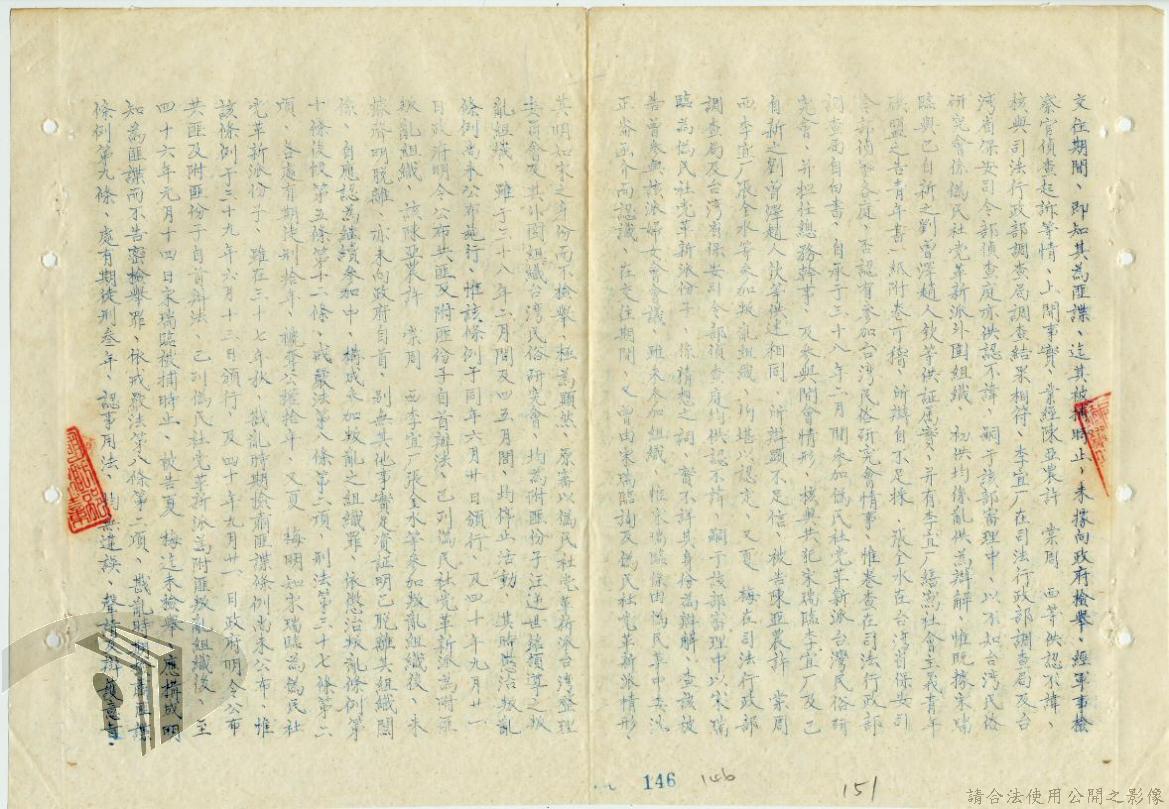 交往期間、即知其為匪諜、迄其被捕時止、未據向政府檢舉、經軍事檢
察官偵查起訴等情、上開事實、業經陳亞農許 崇周 西等供認不諱、
核與司法行政部調查局調查結果相符、李宜廠在司法行政部調查局及台
灣省保安司令部偵查庭亦供認不諱、嗣于該部審理中、以不知台湾民俗
研究會係偽民社党革新派外圍組織、初供均係亂供為辯解、惟既據宋瑞
臨與已自新之劉曾澤趙人欽等供証屬實、并有李宜厂繕寫社會主義青年
同盟之告青年書一紙附卷可稽、所辯自不足採、張全水在台湾省保安司
令部偵審各庭、否認有參加台湾民俗研究會情事、惟卷查在司法行政部
調查局自白書、自承于三十八年二月間參加偽民社党革新派台灣民俗研
究會、并担任總務幹事、及參與開會情形、核與共犯宋瑞臨李宜厂及已
自新之劉曾澤趙人欽等供述相同、所辯顯不足信、被告陳亞農許 崇周
西李宜厂張全水等參加叛亂組織、所堪以認定、又夏 梅在司法行政部
調查局及台湾省保安司令部偵查庭均供認不諱、嗣于該部審理中以宋瑞
臨為偽民社党革新派份子、係猜想之詞、實不詳其身份為辯解、查該被
告曾參與該派婦女會會議、雖未參加組織、惟宋瑞臨係由偽民革中委沈
正 崙函介而認識、在交往期間、又曾由宋瑞臨詢及偽民社党革新派情形、
其明知宋之身份而不檢舉、極為顯然、原審以偽民社党革新派台灣整理
委員會及其外圍組織台灣民俗研究會、均為附匪份子汪 世 領導之叛
亂組織、雖于三十八年二月間及四五月間、均停止活動、其時懲治叛亂
條例尚未公布施行、惟該條例于同年六月廿一日頒行、及四十年九月廿一
日政府明令公布共匪及附匪份子自首辦法、已列偽民社党革新派為附匪
叛亂組織、該陳亞農許 崇周 西李宜厂張全水等參加叛亂組織後、未
據聲明脫離、亦未向政府自首、別無其他事實足資証明已脫離其組織關
係、自應認為繼續參加中、構成參加叛亂之組織罪、依懲治叛亂條例第
十條後段第五條第十二條、戒嚴法第八條第二項、刑法第三十七條第二
項、各處有期徒刑拾年、褫奪公權拾年、又夏 梅明知宋瑞臨為偽民社
党革新派份子、雖在三十七年秋、戡亂時期檢肅匪諜條例尚未公布、惟
該條例于三十九年六月十三日頒行、及四十年九月廿一日政府明令公布
共匪及附匪份子自首辦法、已列偽民社党革新派為附匪叛亂組織後、至
四十六年元月十四日宋瑞臨被捕時止、被告夏 梅迄未檢舉、應構成明
知為匪諜而不告密檢舉罪、依戒嚴法第八條第二項、戡亂時期檢肅匪諜
條例第九條、處有期徒刑叁年、認事用法、均無違誤、聲請覆判
146
146
151
請合法使用公開之影像